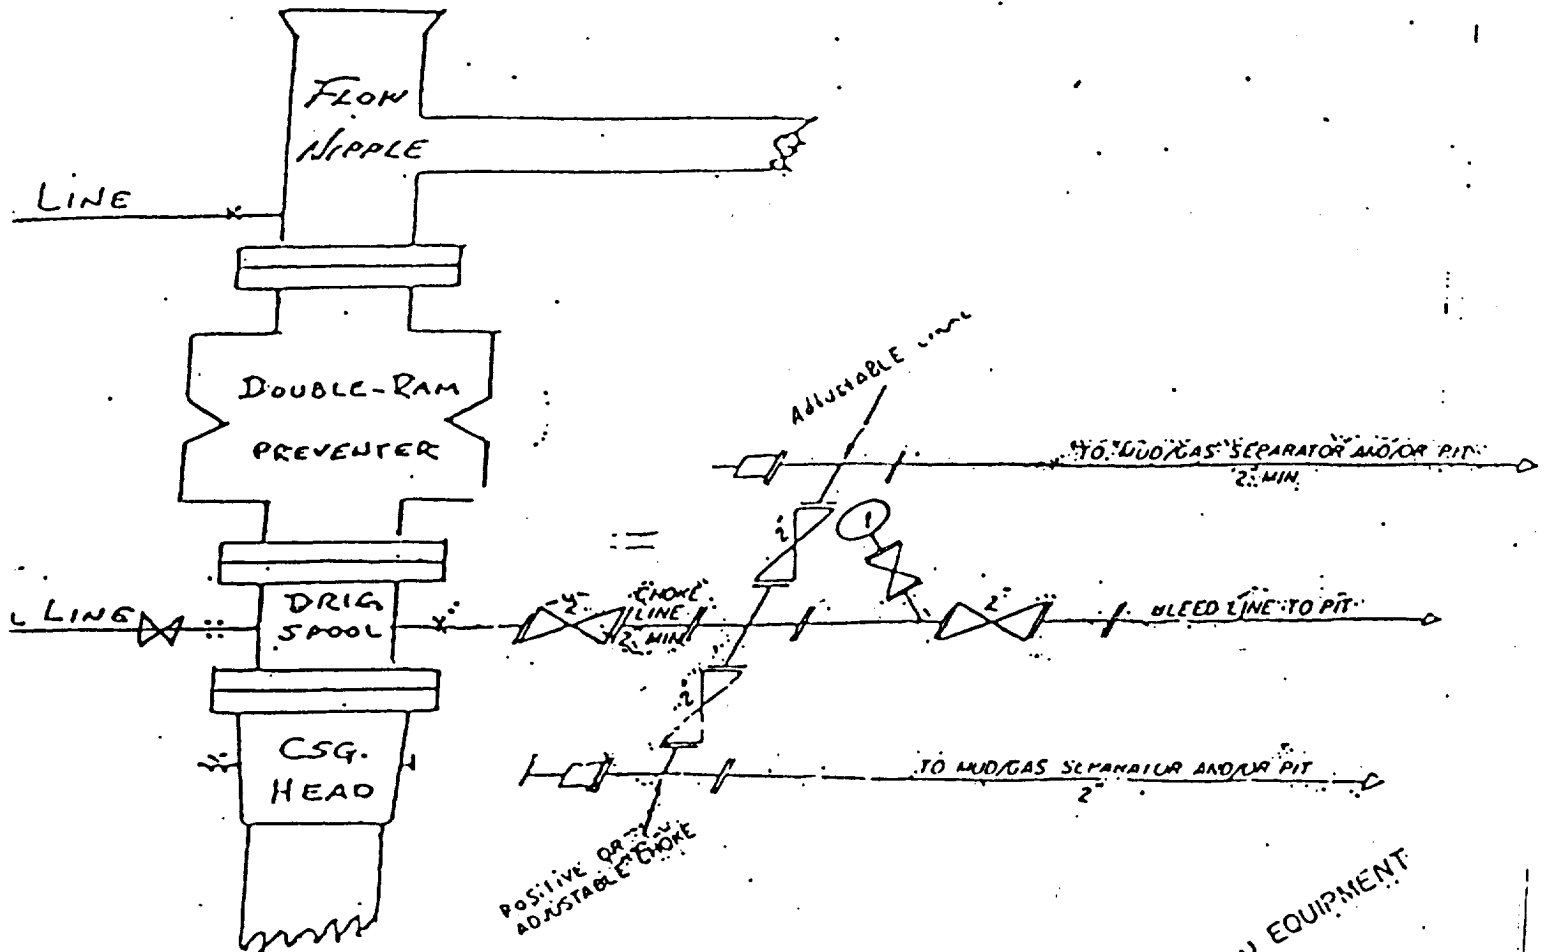 FLOW
NIPPLE
LINE
DOUBLE-RAM
PREVENTER
ADJUSTABLE
TO MUD/GAS SEPARATOR AND/OR PIT
2" MIN
2"
LINE
DRLG
SPOOL
2"
CHOKE
LINE
2" MIN
2"
BLEED LINE TO PIT
2"
CSG.
HEAD
TO MUD/GAS SEPARATOR AND/OR PIT
2"
POSITIVE OR
ADJUSTABLE CHOKE
EQUIPMENT